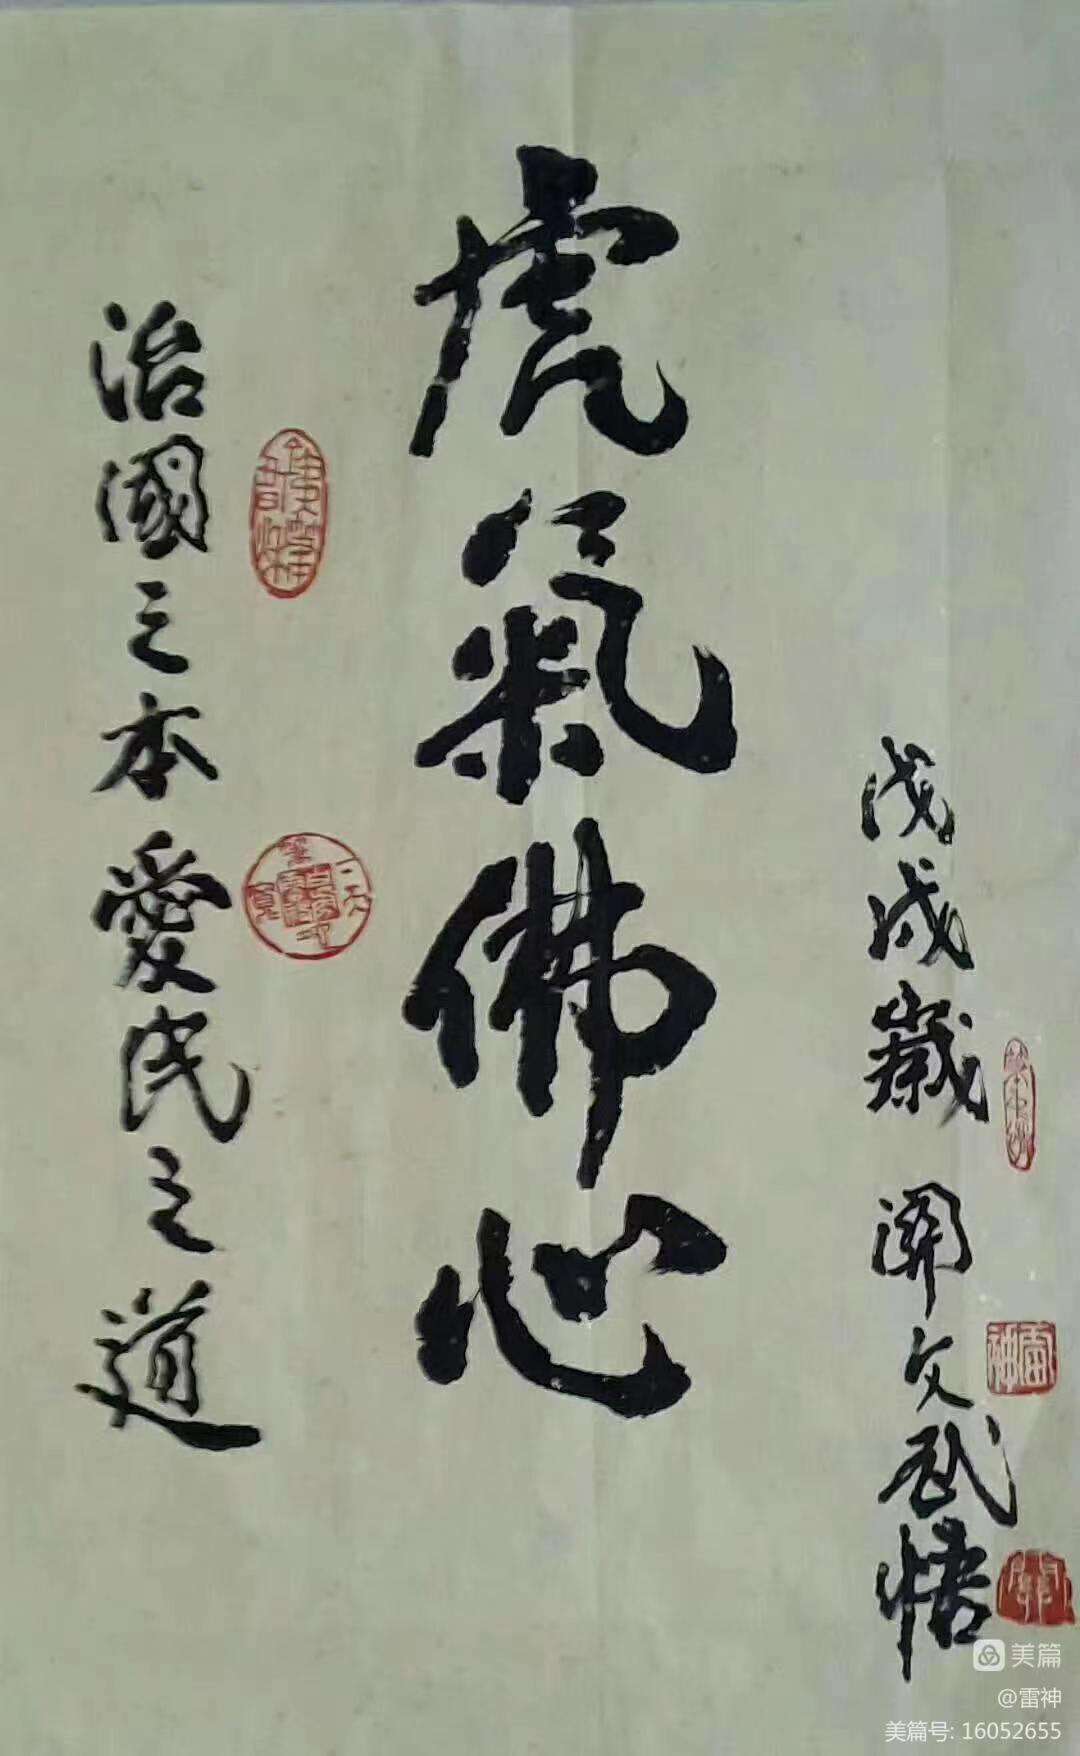 虎氣佛心
治國之本愛民之道
戊戌歲 關文武悟
雷神
美篇
@雷神
美篇号: 16052655